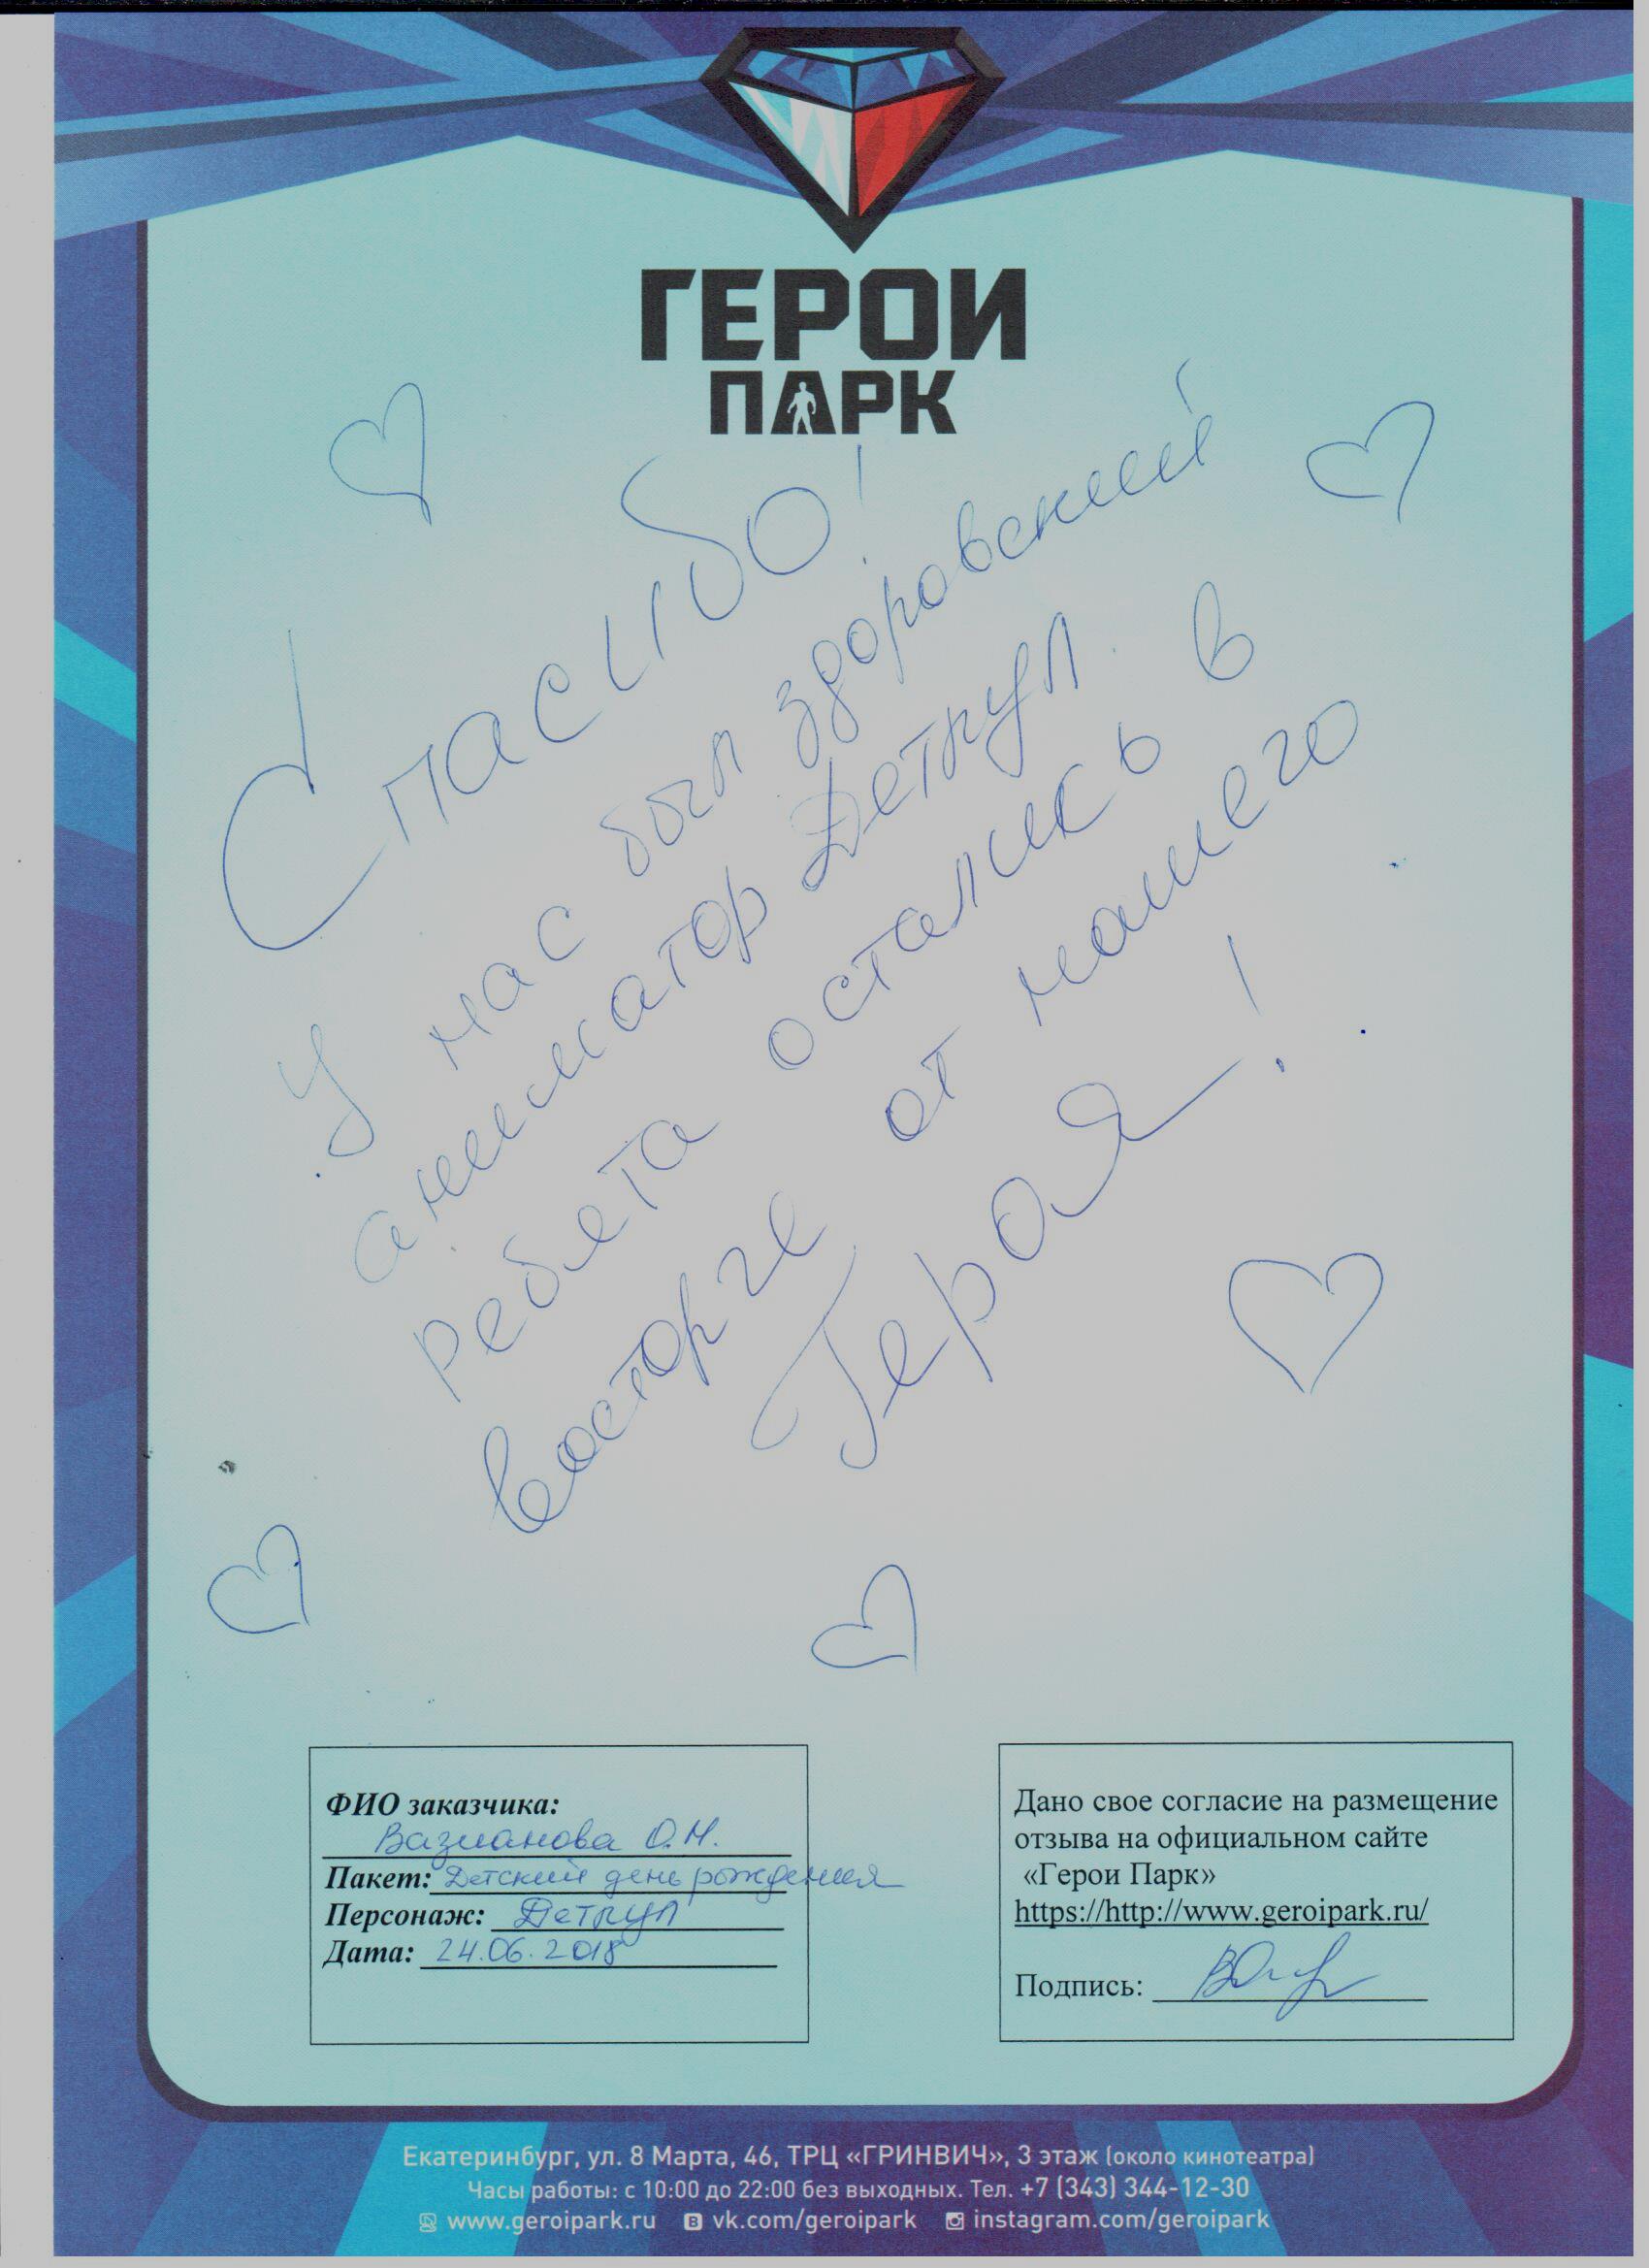 ГЕРОИ
ПАРК
Спасибо!
У нас был здоровский
аниматор Детпул.
ребята остались в
восторге от нашего
Героя!
ФИО заказчика:
Вазианова О.Н.
Пакет: Детский день рождения
Персонаж: Детпул
Дата: 24.06.2018
Дано свое согласие на размещение
отзыва на официальном сайте
«Герои Парк»
https://http://www.geroipark.ru/
Подпись:
Екатеринбург, ул. 8 Марта, 46, ТРЦ «ГРИНВИЧ», 3 этаж (около кинотеатра)
Часы работы: с 10:00 до 22:00 без выходных. Тел. +7 (343) 344-12-30
www.geroipark.ru vk.com/geroipark instagram.com/geroipark